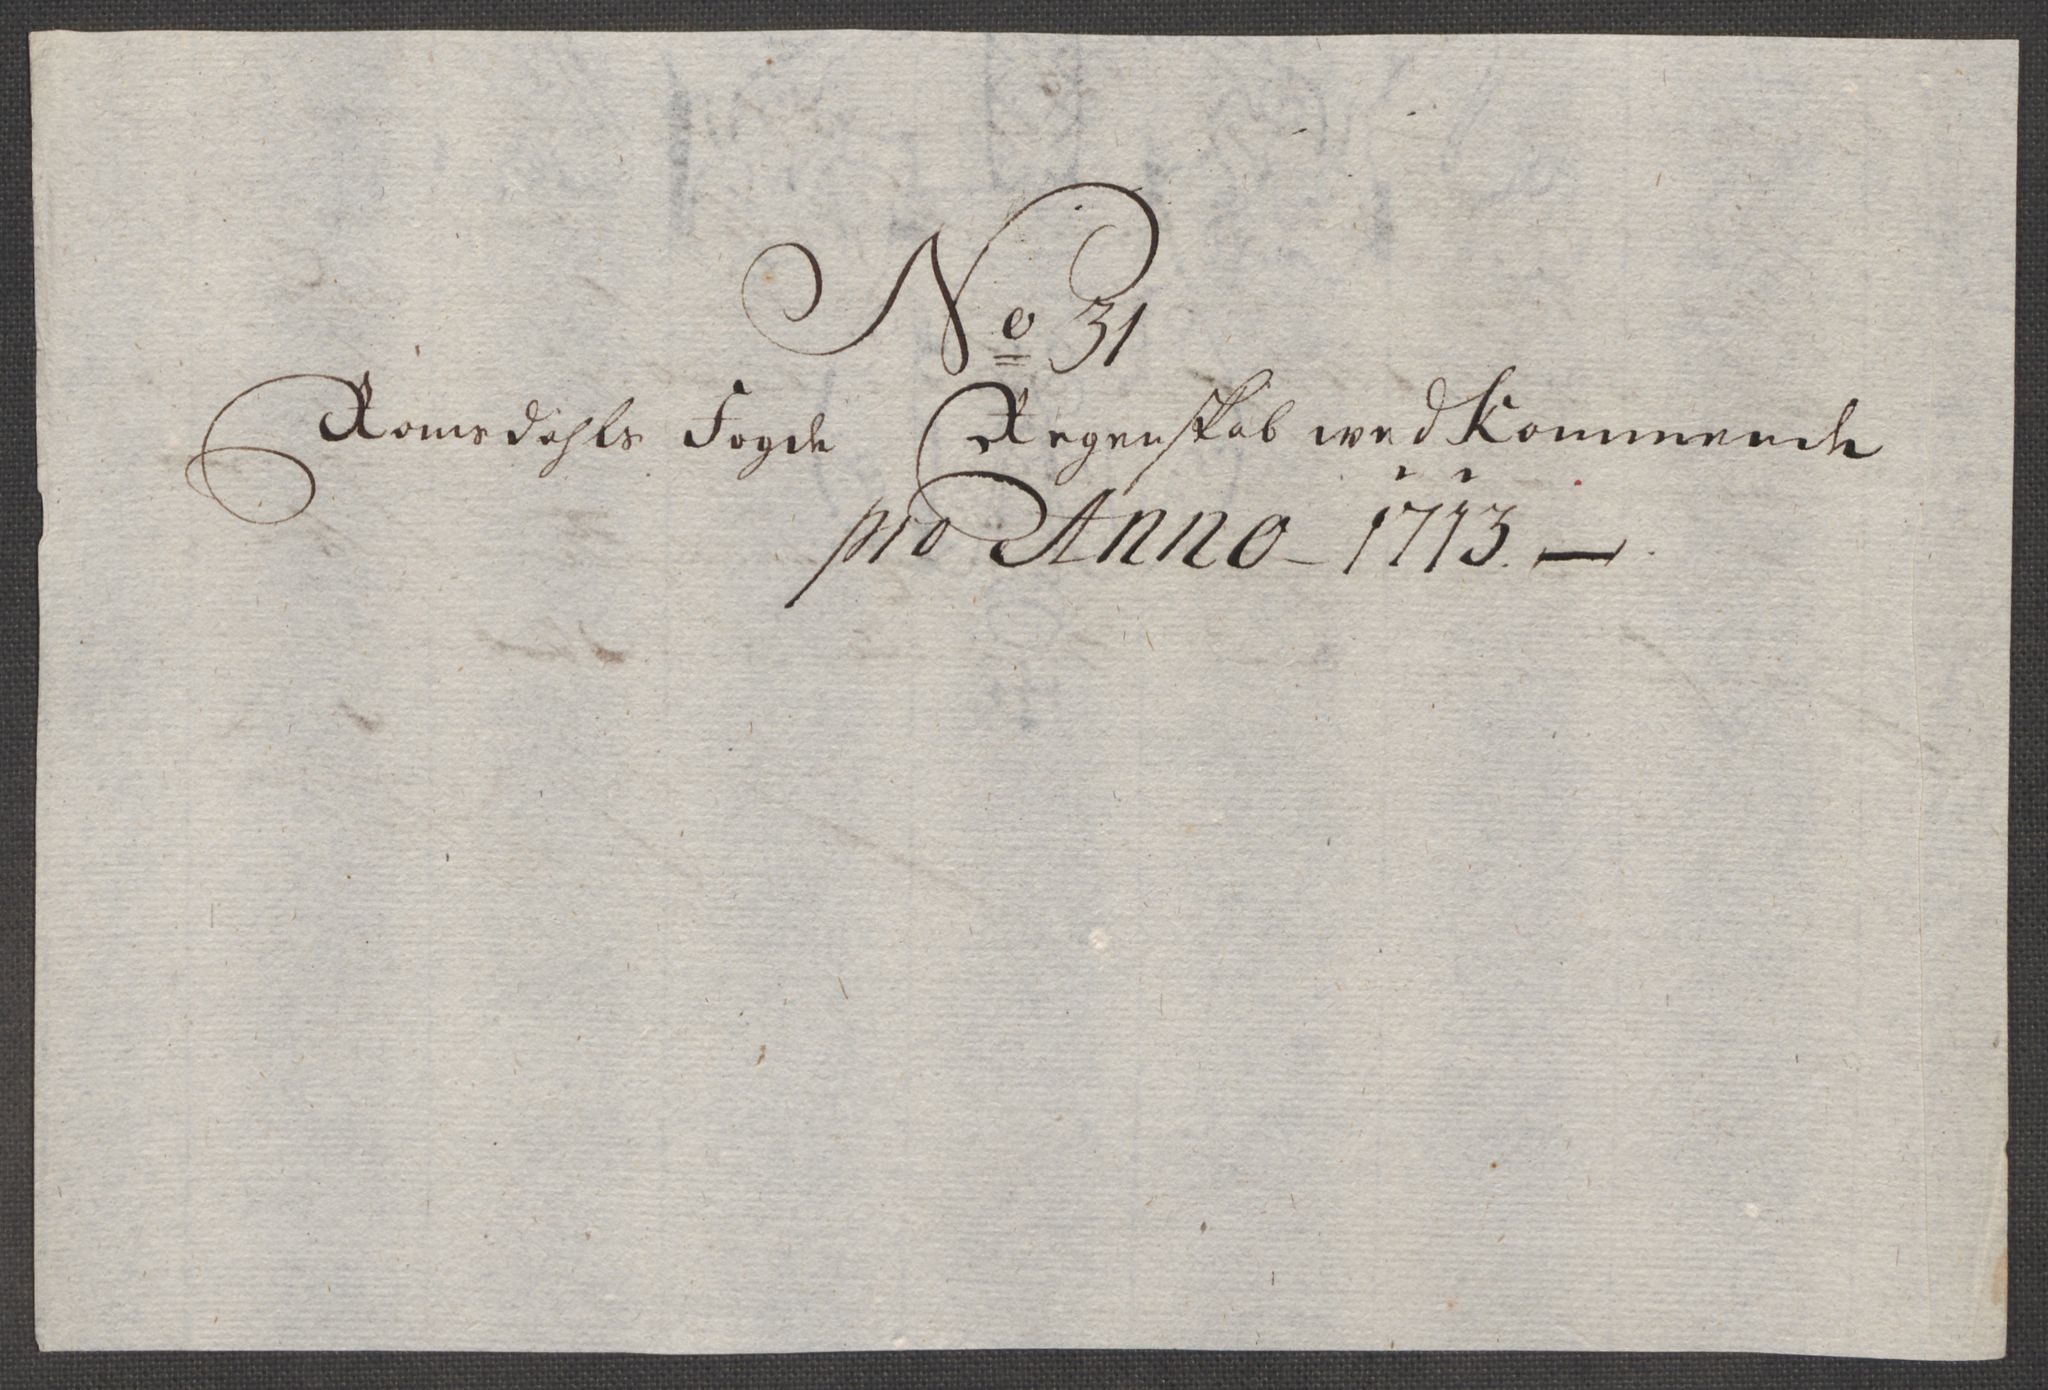 No 31
Romsdahls Fogde Regenskab wedkommende
pro Anno 1713.